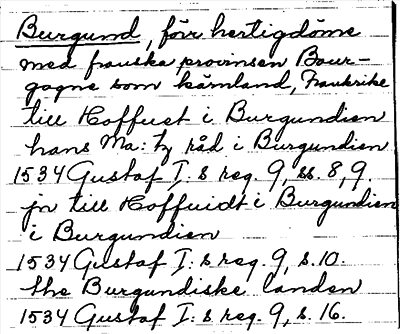 Burgund, förr hertigdöme
med franska provinsen Bour-
gogne som kärnland, Frankrike
till Hoffuet i Burgundien
hans Ma: ty råd i Burgundien
1534 Gustaf I: s reg. 9, ss. 8, 9.
jn till Hoffuidt i Burgundien
i Burgundien
1534 Gustaf I: s reg. 9, s. 10.
the Burgundiske landen
1534 Gustaf I: s reg. 9, s. 16.